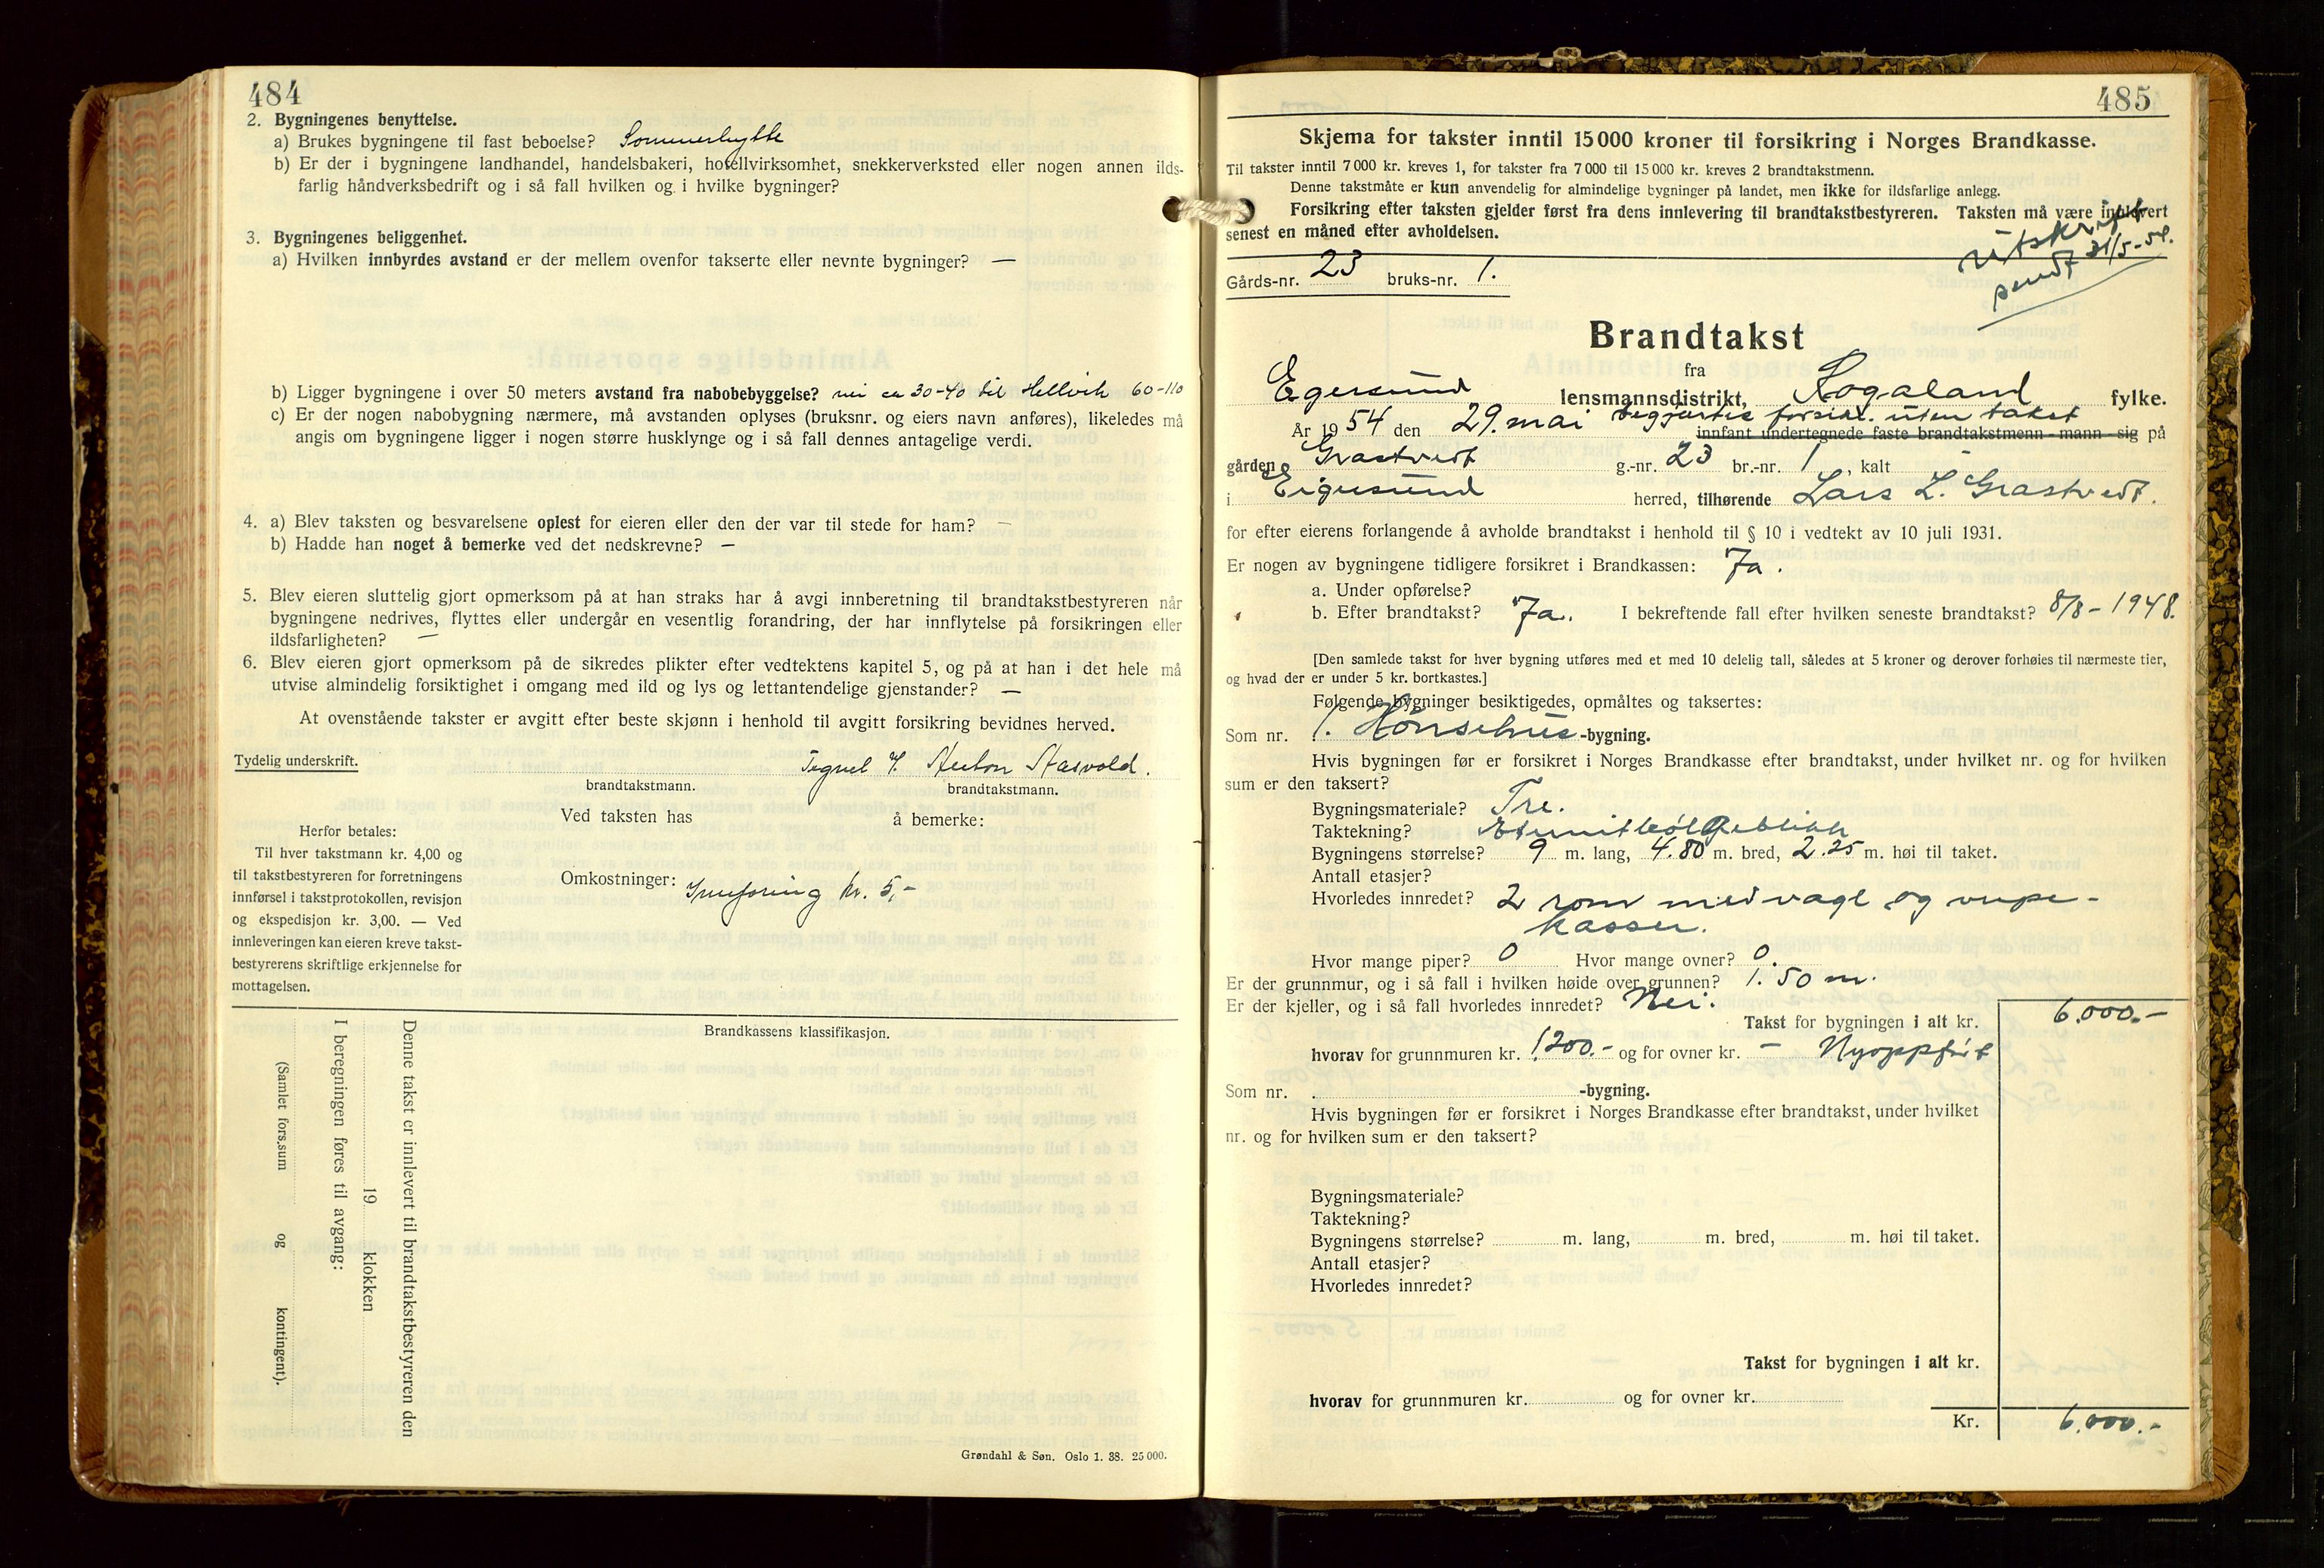 484
2. Bygningenes benyttelse.
a) Brukes bygningene til fast beboelse? Sommerhytte
b) Er der i bygningene landhandel, handelsbakeri, hotellvirksomhet, snekkerverksted eller nogen annen ilds-
farlig håndverksbedrift og i så fall hvilken og i hvilke bygninger?
3. Bygningenes beliggenhet.
a) Hvilken innbyrdes avstand er der mellem ovenfor takserte eller nevnte bygninger? —
b) Ligger bygningene i over 50 meters avstand fra nabobebyggelse? nei ca 30-40 til Hellvik 60-110
c) Er der nogen nabobygning nærmere, må avstanden oplyses (bruksnr. og eiers navn anføres), likeledes må
angis om bygningene ligger i nogen større husklynge og i så fall dennes antagelige verdi.
4. a) Blev taksten og besvarelsene oplest for eieren eller den der var til stede for ham? —
b) Hadde han noget å bemerke ved det nedskrevne? —
5. Blev eieren sluttelig gjort opmerksom på at han straks har å avgi innberetning til brandtakstbestyreren når
bygningene nedrives, flyttes eller undergår en vesentlig forandring, der har innflytelse på forsikringen eller
ildsfarligheten? —
6. Blev eieren gjort opmerksom på de sikredes plikter efter vedtektens kapitel 5, og på at han i det hele må
utvise almindelig forsiktighet i omgang med ild og lys og lettantendelige gjenstander? —
At ovenstående takster er avgitt efter beste skjønn i henhold til avgitt forsikring bevidnes herved.
Tydelig underskrift.
brandtakstmann. brandtakstmann.
Ved taksten has å bemerke:
Herfor betales:
Til hver takstmann kr. 4,00 og
til takstbestyreren for forretningens
innførsel i takstprotokollen, revisjon
og ekspedisjon kr. 3,00. — Ved
innleveringen kan eieren kreve takst-
bestyrerens skriftlige erkjennelse for
mottagelsen.
Omkostninger: Innføring kr. 5,-
Brandkassens klassifikasjon.
Denne takst er innlevert til brandtakstbestyreren den
19 klokken
I beregningen føres til avgang:
(Samlet fors.sum og kontingent).
Grøndahl & Søn, Oslo 1. 38. 25 000.
485
Skjema for takster inntil 15 000 kroner til forsikring i Norges Brandkasse.
Til takster inntil 7 000 kr. kreves 1, for takster fra 7 000 til 15 000 kr. kreves 2 brandtakstmenn.
Denne takstmåte er kun anvendelig for almindelige bygninger på landet, men ikke for ildsfarlige anlegg.
Forsikring efter taksten gjelder først fra dens innlevering til brandtakstbestyreren. Taksten må være innlevert
senest en måned efter avholdelsen.
Utskrift
sendt 31/5-54.
Gårds-nr. 23 bruks-nr. 1.
Brandtakst
fra
Egersund lensmannsdistrikt, Rogaland fylke.
År 1954 den 29. mai begjærtes forsikr. uten takst
innfant undertegnede faste brandtakstmenn - mann - sig på
gården Grastveit g.-nr. 23 br.-nr. 1, kalt —
i Eigersund herred, tilhørende Lars L. Grastveit.
for efter eierens forlangende å avholde brandtakst i henhold til § 10 i vedtekt av 10 juli 1931.
Er nogen av bygningene tidligere forsikret i Brandkassen: Ja.
a. Under opførelse?
b. Efter brandtakst? Ja. I bekreftende fall efter hvilken seneste brandtakst? 8/8-1948.
[Den samlede takst for hver bygning utføres med et med 10 delelig tall, således at 5 kroner og derover forhøies til nærmeste tier,
og hvad der er under 5 kr. bortkastes.]
Følgende bygninger besiktigedes, opmåltes og taksertes:
Som nr. 1. Hønsehus -bygning.
Hvis bygningen før er forsikret i Norges Brandkasse efter brandtakst, under hvilket nr. og for hvilken
sum er den taksert?
Bygningsmateriale? Tre.
Taktekning?
Bygningens størrelse? 9 m. lang, 4.80 m. bred, 2.25 m. høi til taket.
Antall etasjer?
Hvorledes innredet? 2 rom med vagl og verpe-
kasser.
Hvor mange piper? 0 Hvor mange ovner? 0.
Er der grunnmur, og i så fall i hvilken høide over grunnen? 1.50 m.
Er der kjeller, og i så fall hvorledes innredet? Nei.
Takst for bygningen i alt kr. 6.000.-
hvorav for grunnmuren kr. 1200.- og for ovner kr. — Nyoppført
Som nr. -bygning.
Hvis bygningen før er forsikret i Norges Brandkasse efter brandtakst, under hvilket
nr. og for hvilken sum er den taksert?
Bygningsmateriale?
Taktekning?
Bygningens størrelse? m. lang, m. bred, m. høi til taket.
Antall etasjer?
Hvorledes innredet?
Takst for bygningen i alt kr.
hvorav for grunnmuren kr. og for ovner kr.
Kr. 6.000.-